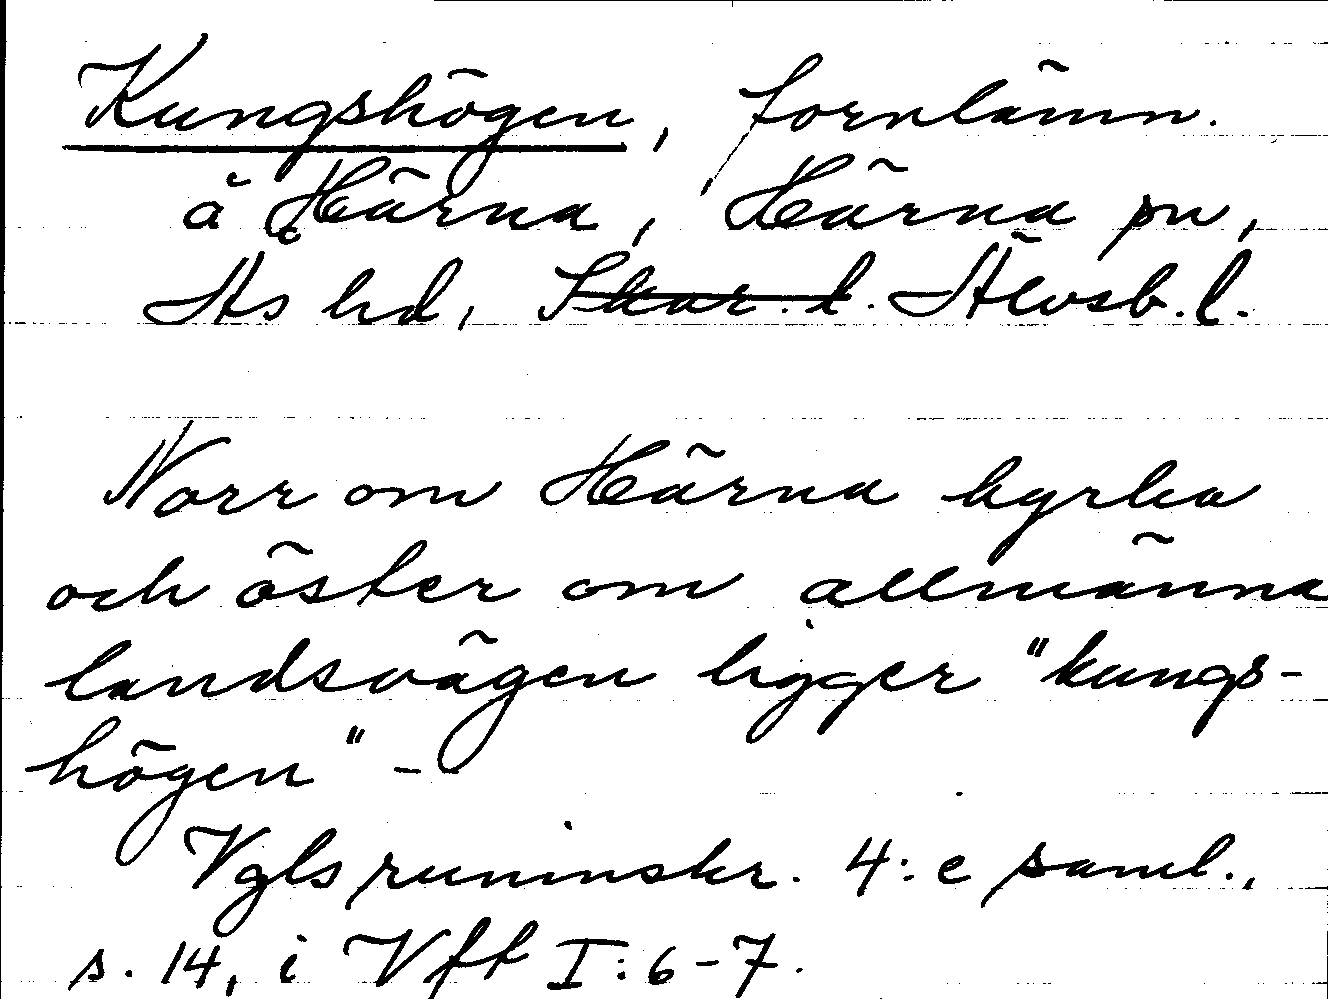 Kungshögen, fornlämn.
å Härna, Härna sn,
Ås hd, Skar. l. Älvsb. l.
Norr om Härna kyrka
och öster om allmänna
landsvägen ligger "kungs-
högen" --
Vgls runinskr. 4:e saml.,
s. 14, i Vft I:6-7.